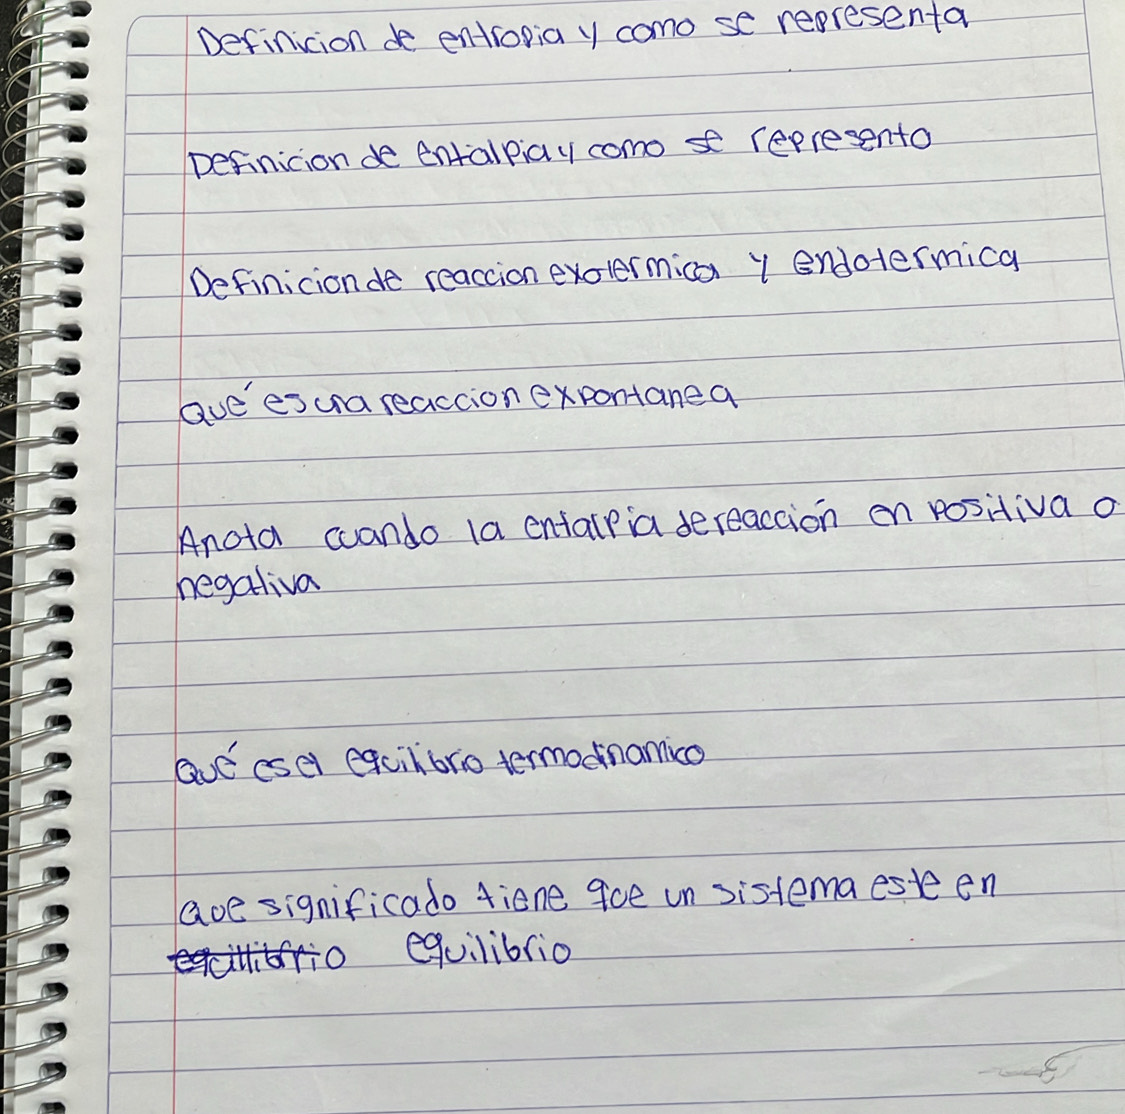 Definicion de entropia y como se representa
Definicion de entalpia y como se representa
Definicion de reaccion exotermica y endotermica
Qué es una reaccion expontanea
Anota cuando la entalpia de reacción en positiva o
negativa
Qué es el equilibrio termodinamico
Que significado tiene que un sistema este en
equilibrio